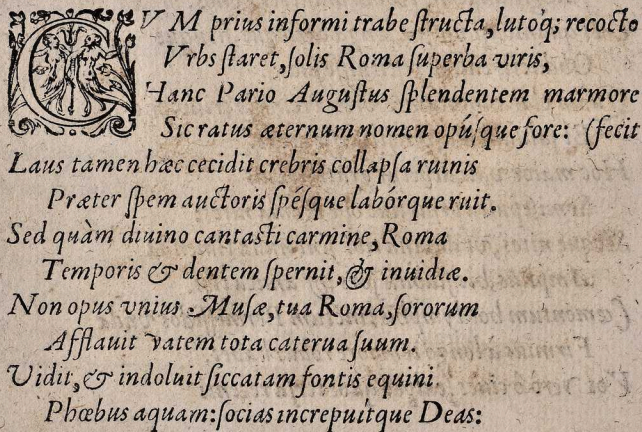 CVM prius informi trabe ſtructa, lutóq; recocto
Vrbs ſtaret, ſolis Roma ſuperba viris,
Hanc Pario Auguſtus ſplendentem marmore
Sic ratus æternum nomen opúſque fore: (fecit
Laus tamen hæc cecidit crebris collapſa ruinis
Præter ſpem auctoris ſpéſque labórque ruit.
Sed quàm diuino cantaſti carmine, Roma
Temporis & dentem ſpernit, & inuidiæ.
Non opus vnius Muſæ, tua Roma, ſororum
Afflauit vatem tota caterua ſuum.
Vidit, & indoluit ſiccatam fontis equini
Phœbus aquam: ſocias increpuítque Deas: